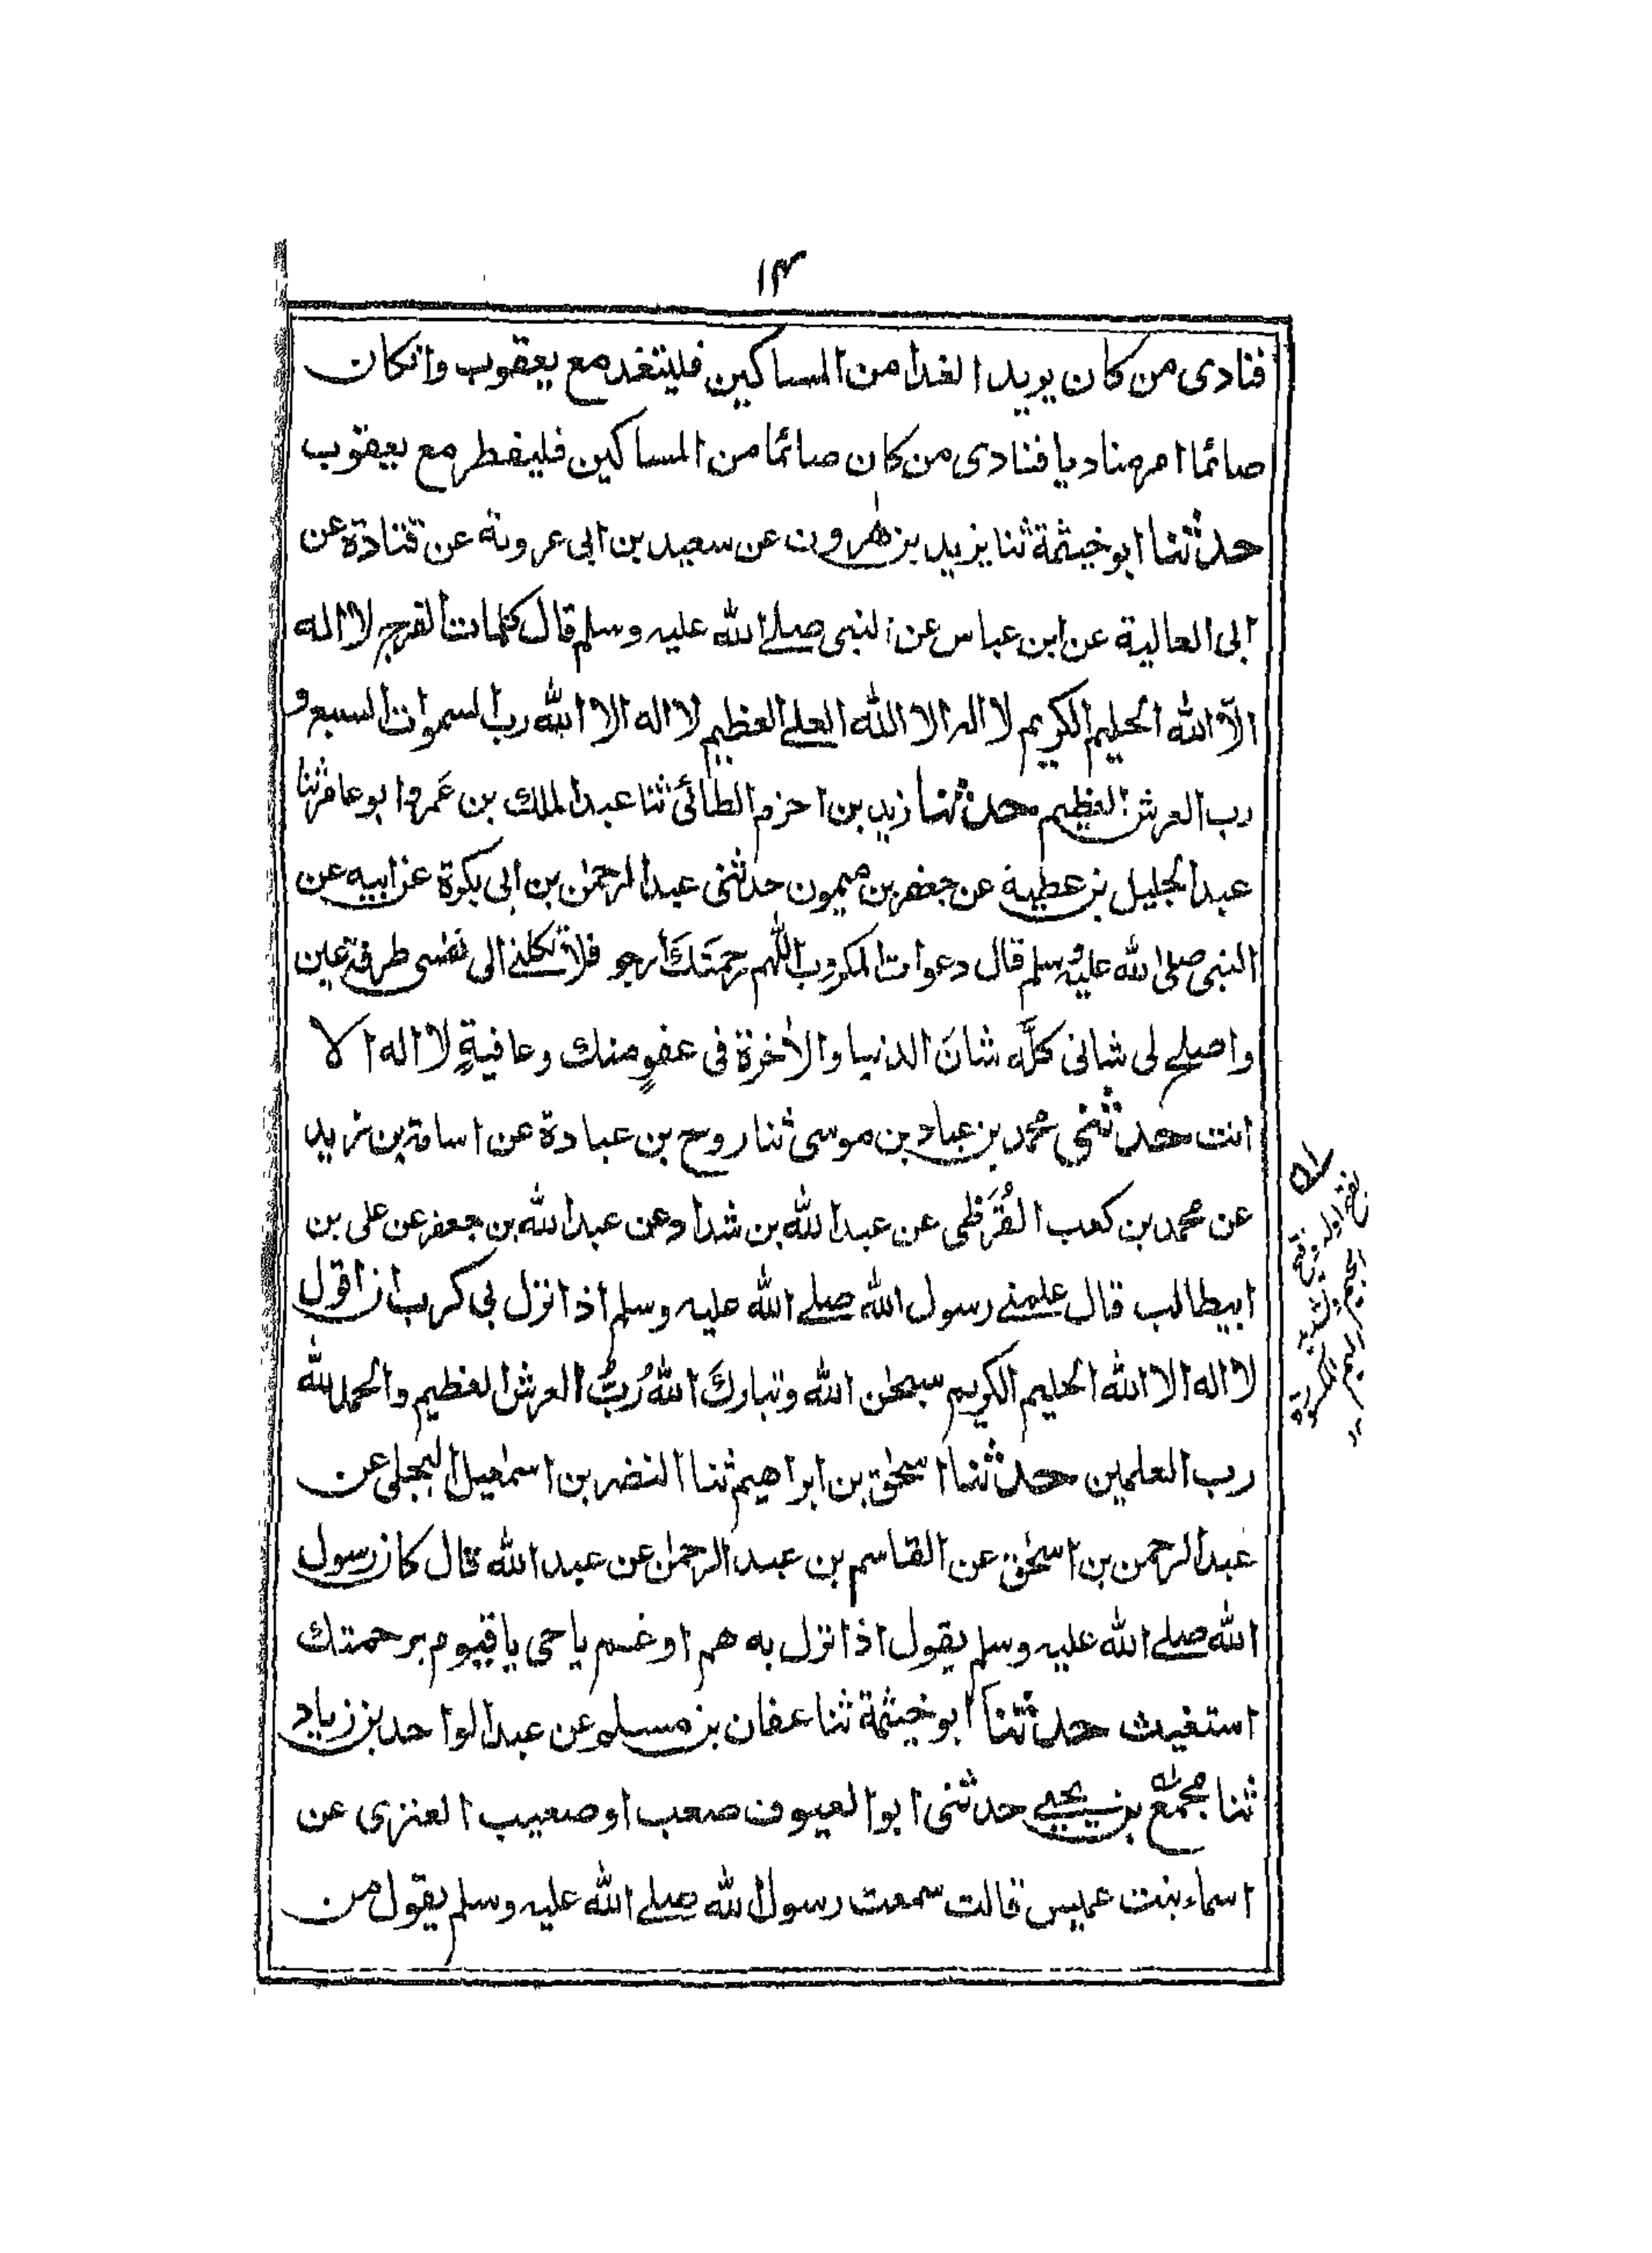 ۱۴
فنادى من كان يريد الغدا من المساكين فليتغد مع يعقوب وانكان
صائما امر مناديا فنادى من كان صائما من المساكين فليفطر مع يعقوب
حدثنا ابو خيثمة ثنا يزيد بن هٰرون عن سعيد بن ابى عروبة عن قتادة عن
ابى العالية عن ابن عباس عن النبى صلے الله عليه وسلم قال كلمات الفرج لا اله
الا الله الحليم الكريم لا اله الا الله العلے العظيم لا اله الا الله رب السموات السبع و
رب العرش العظيم حدثنا زيد بن احزم الطائى ثنا عبد الملك بن عَمرو ابو عامر ثنا
عبد الجليل بن عطية عن جعفر بن ميمون حدثنى عبد الرحمٰن بن ابى بكرة عن ابيه عن
النبى صلى الله عليه وسلم قال دعوات المكروب اللّٰهم رحمتَكَ ارجو فلا تكلنے الى نفسى طرفة عين
واصلح لى شانى كلَّه شانَ الدنيا والاٰخرة فى عفوٍ منك وعافيةٍ لا اله الا
انت حدثنى محمد بن عباد بن موسى ثنا روح بن عبادة عن اسامة بن زيد
عن محمد بن كعب القُرَظى عن عبد الله بن شداد عن عبد الله بن جعفر عن على بن
ابيطالب قال علمنے رسول الله صلے الله عليه وسلم اذا نزل بى كرب ان اقول
لا اله الا الله الحليم الكريم سبحٰن الله وتباركَ اللهُ رَبُّ العرش العظيم والحمد لله
رب العلمين حدثنا اسحٰق بن ابراهيم ثنا النضر بن اسمٰعيل البجلى عن
عبد الرحمن بن اسحٰق عن القاسم بن عبد الرحمٰن عن عبد الله قال كان رسول
الله صلے الله عليه وسلم يقول اذا نزل به هم او غم يا حى يا قيوم برحمتك
استغيث حدثنا ابو خيثمة ثنا عفان بن مسلم عن عبد الواحد بن زياد
ثنا مجمّع بن يحيے حدثنى ابو العيوف صعب او صعيب العنزى عن
اسماء بنت عميس قالت سمعت رسول الله صلے الله عليه وسلم يقول من